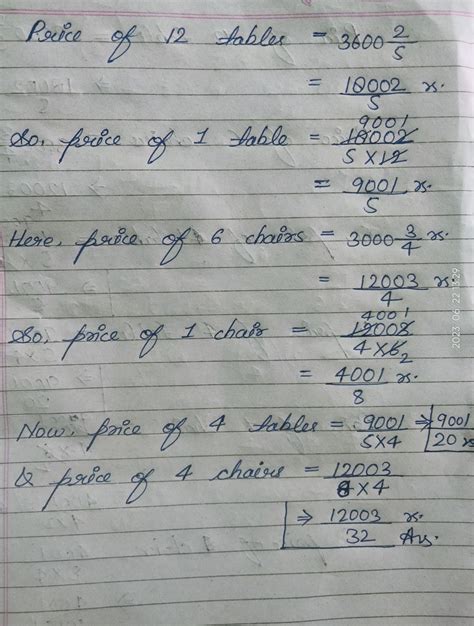 Price of 12 tables = 3600 2/5
= 18002/5 rs.
So, price of 1 table = 18002/5×12 9001
= 9001/5 rs.
Here, price of 6 chairs = 3000 3/4 rs.
= 12003/4 rs.
So, price of 1 chair = 12003/4×6 2 4001
= 4001/8 rs.
Now, price of 4 tables = 9001/5×4 ⇒ 9001/20 rs
& price of 4 chairs = 12003/8×4
⇒ 12003/32 rs. Ans.
2023.06.22